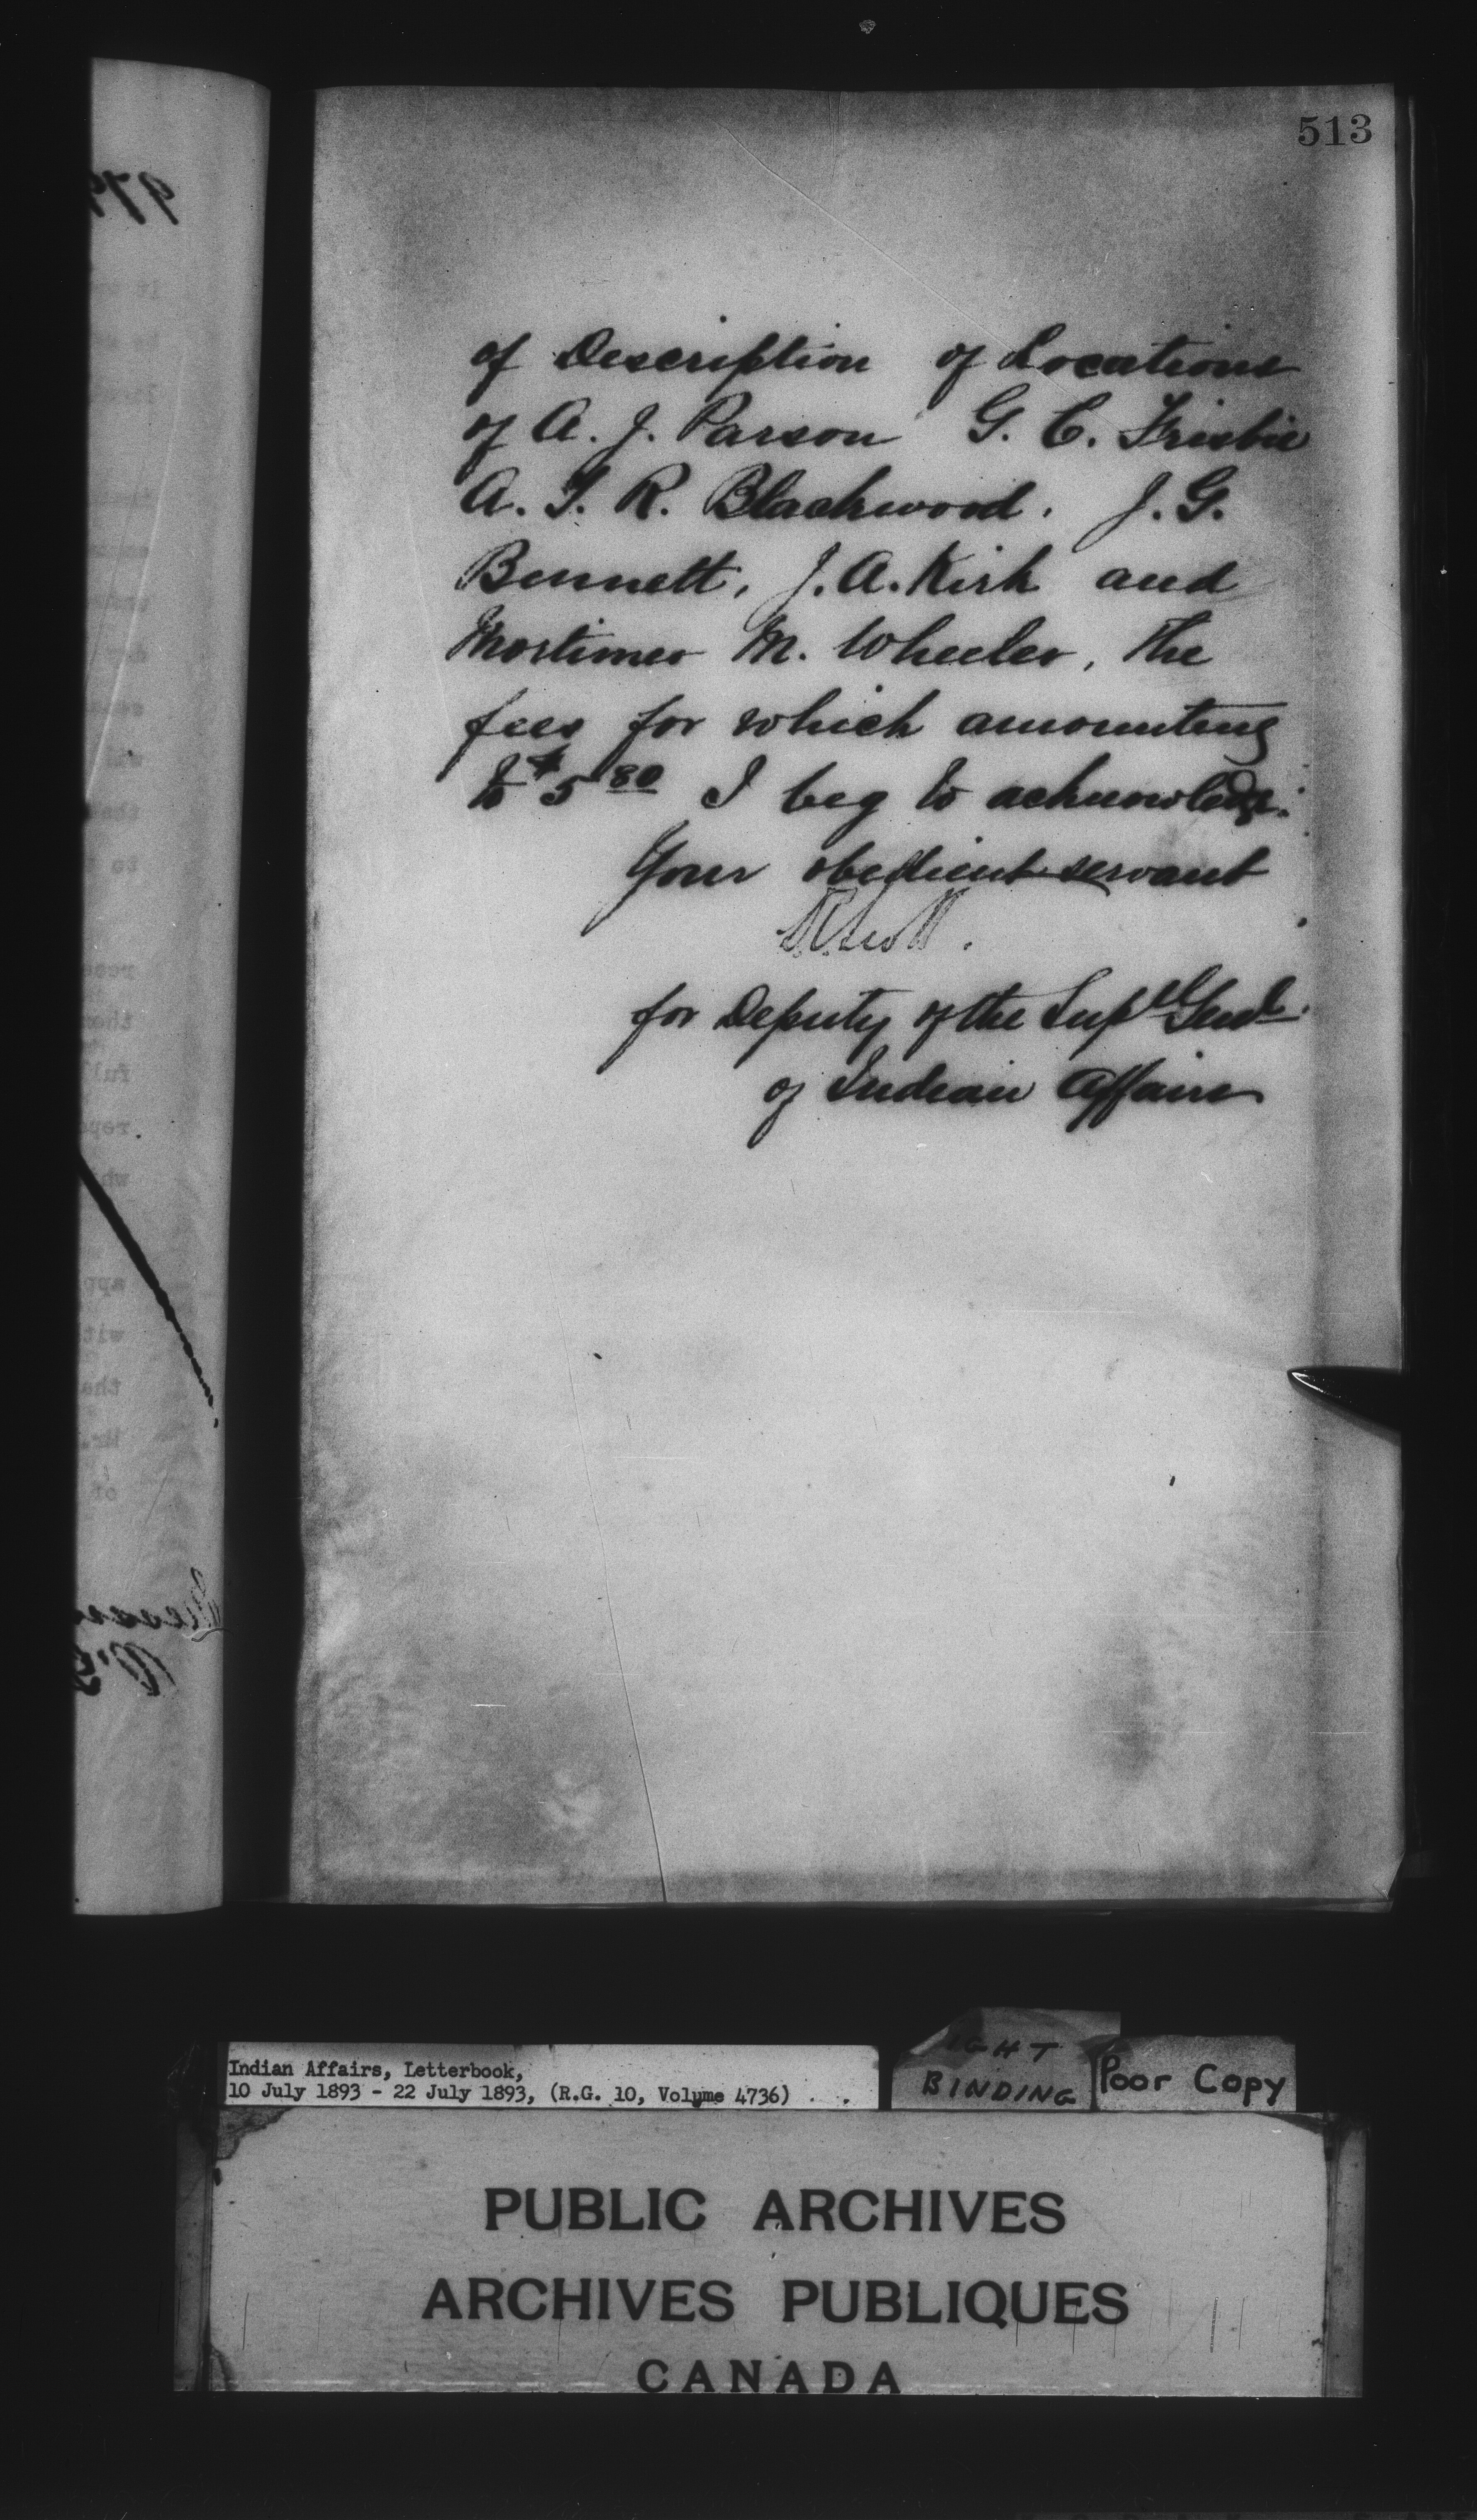 513
of Description of Locations
of A. J. Parson G. C. Frisbie
A. T. R. Blackwood. J. G.
Bennett, J. A. Kirk and
Mortimer M. Wheeler, the
fees for which amounting
to $5 80 I beg to acknowledge.
Your obedient servant
for Deputy of the Supt Genl.
of Indian Affairs
Indian Affairs, Letterbook,
10 July 1893 - 22 July 1893, (R.G. 10, Volume 4736)
BINDING
Poor Copy
PUBLIC ARCHIVES
ARCHIVES PUBLIQUES
CANADA